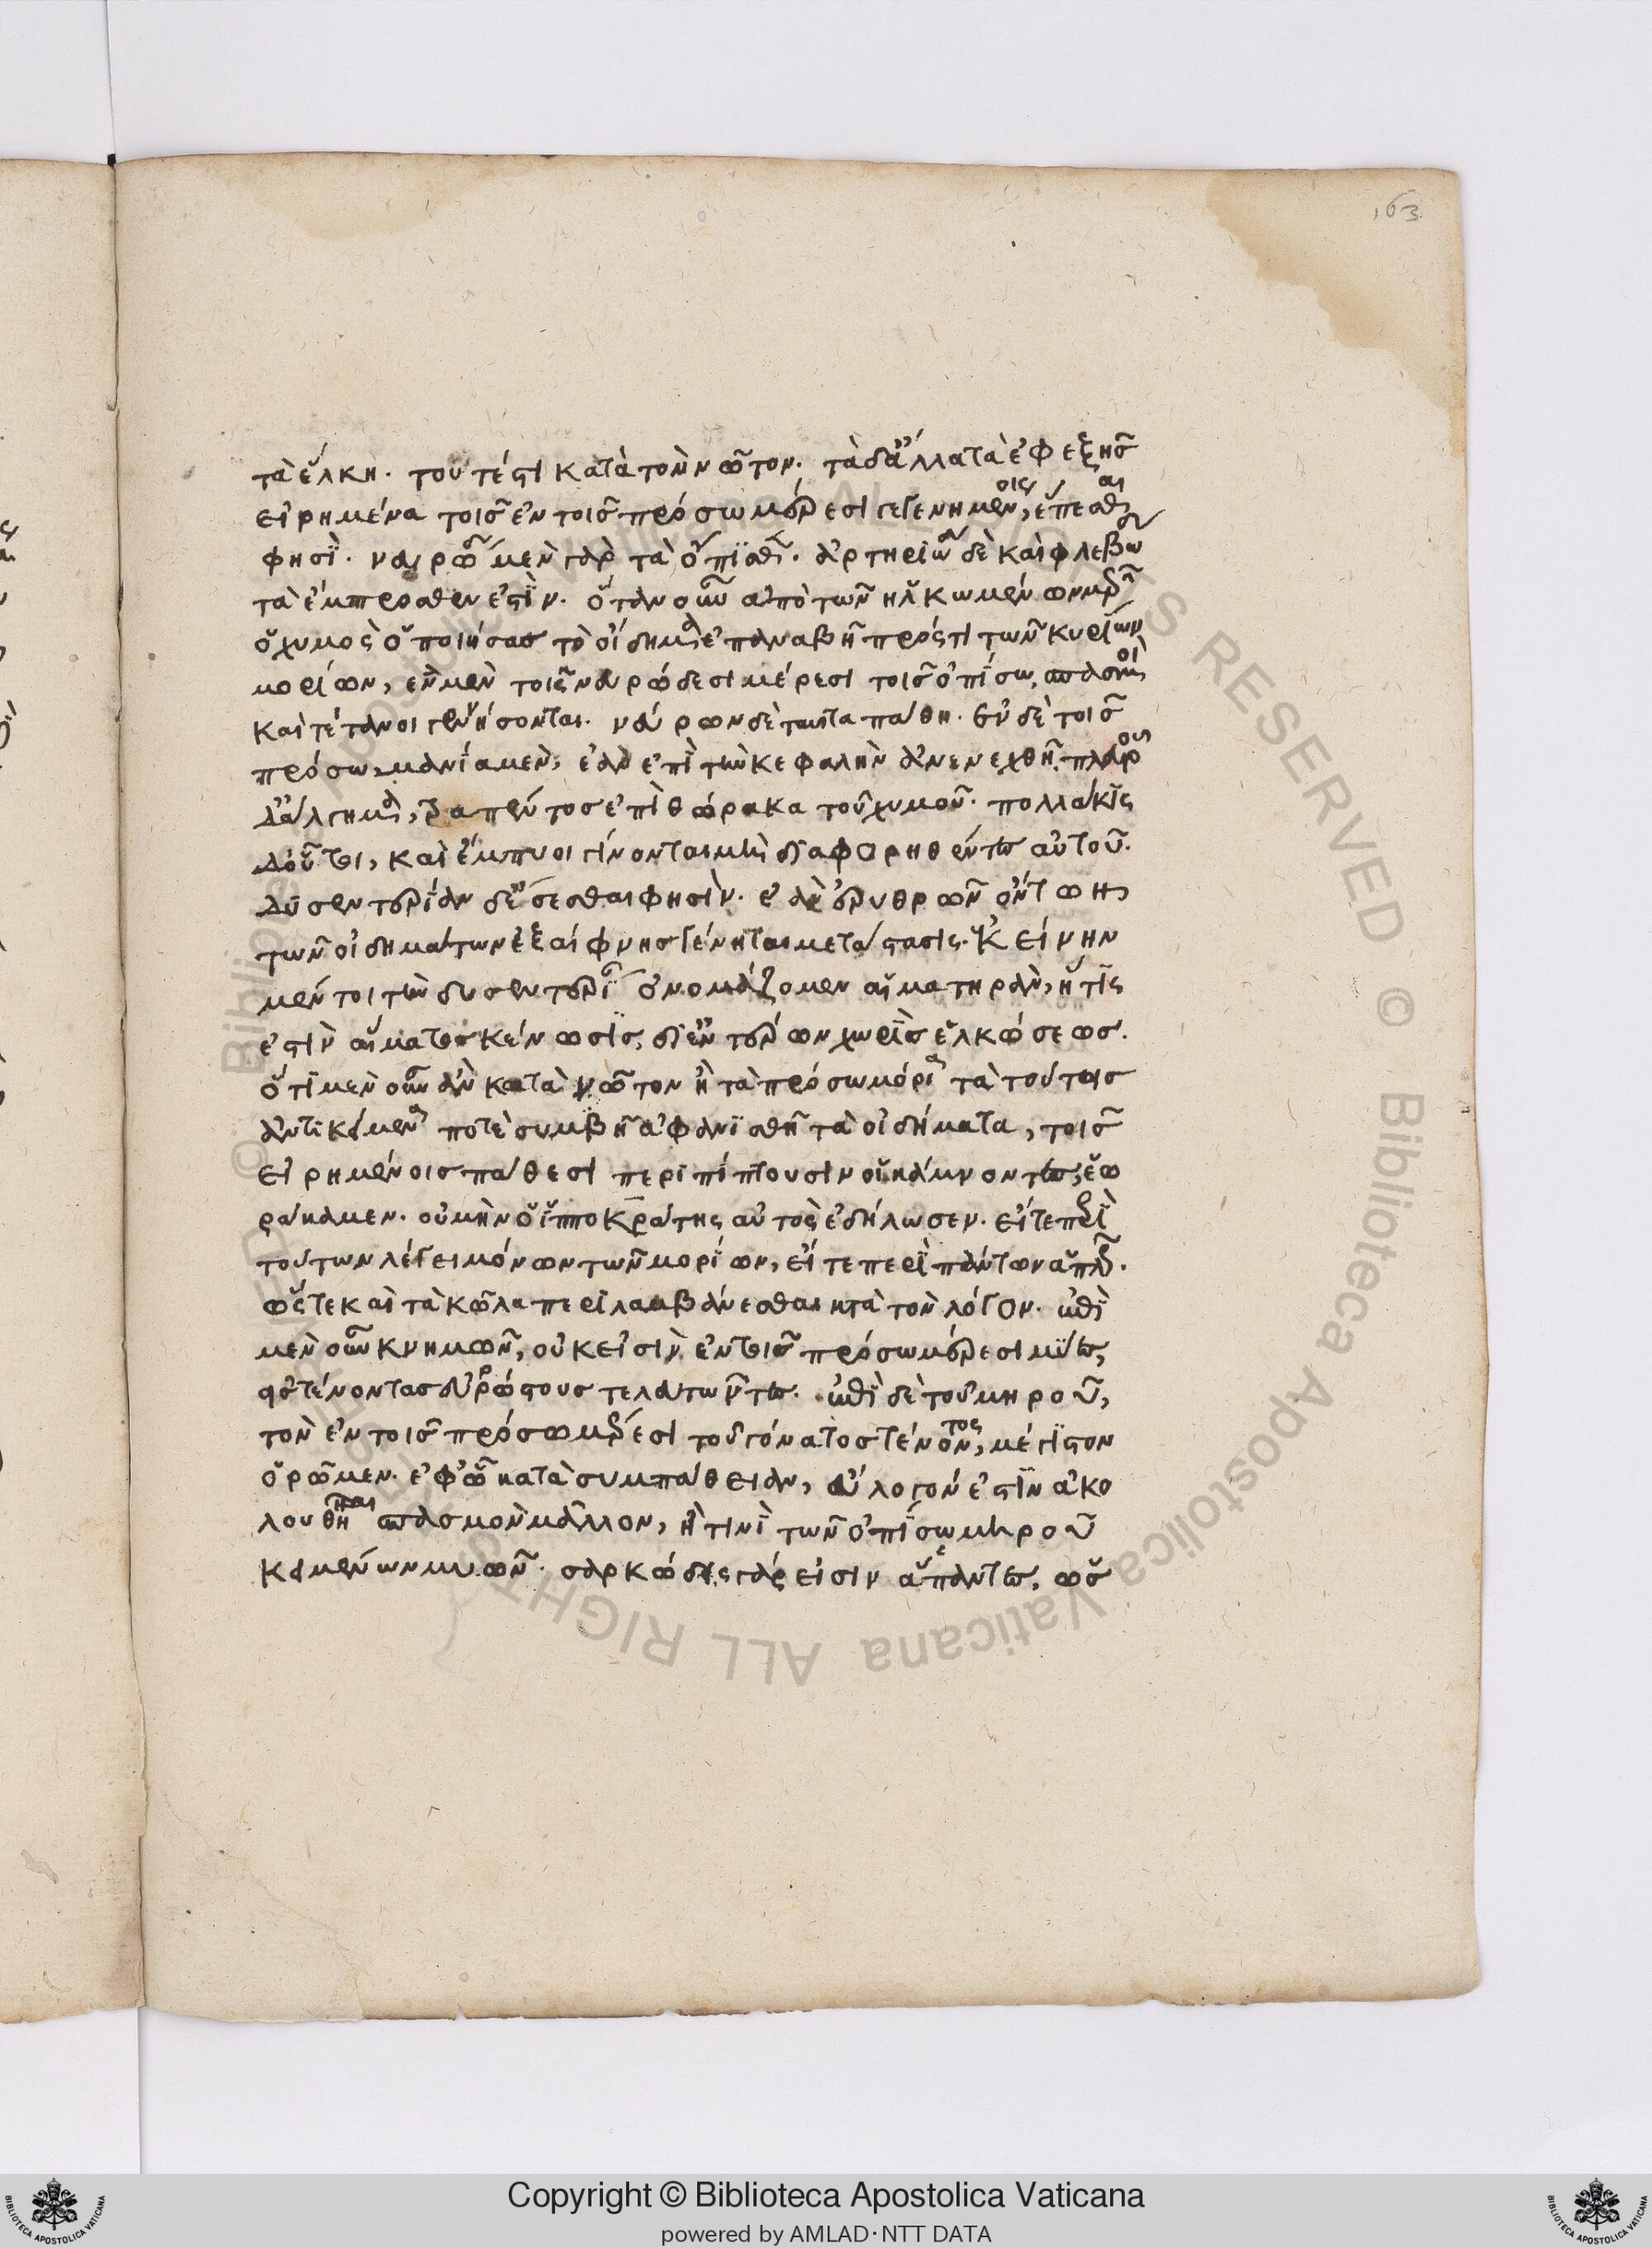 163
τὰ ἕλκη. τουτέστι κατὰ τὸν νῶτον. τὰ δ' ἄλλα τὰ ἐφεξῆς
εἰρημένα τοῖς ἐν τοῖς πρόσω μέρεσι γεγενημένοις, ἕπεσθαι
φησί. νευρώδη μὲν γὰρ τὰ ὄπισθεν. ἀρτηριῶν δὲ καὶ φλεβῶν
τὰ ἔμπροσθεν ἐστίν. ὅταν οὖν ἀπὸ τῶν ἡλκωμένων μερῶν
ὁ χυμὸς ὁ ποιήσας τὸ οἴδημα ἐπαναβῇ πρός τι τῶν κυρίων
μορίων, ἐν μὲν τοῖς νευρώδεσι μέρεσι τοῖς ὀπίσω, σπασμοὶ
καὶ τέτανοι γενήσονται. νεύρων δὲ ταῦτα πάθη. ἐν δὲ τοῖς
πρόσω, μανία μὲν, ἐὰν ἐπὶ τὴν κεφαλὴν ἀνενεχθῇ. πλευροῦ
δ' ἄλγημα, ῥαπέντος ἐπὶ θώρακα τοῦ χυμοῦ. πολλάκις
δ' οὗτοι, καὶ ἔμπυοι γίνονται μὴ διαφορηθέντος αὐτοῦ.
δυσεντερίαν δὲ ἔσεσθαι φησίν. ἐὰν ἐρυθρῶν ὄντων
τῶν οἰδημάτων ἐξαίφνης γένηται μετάστασις. ἐκείνην
μέντοι τὴν δυσεντερίαν ὀνομάζομεν αἱματηρὰν, ἥτις
ἐστὶν αἵματος κένωσις, δι' ἐντέρων χωρὶς ἑλκώσεως.
ὅτι μὲν οὖν ἂν κατὰ νῶτον ἢ τὰ πρόσω μόρια τὰ τούτοις
ἀντικείμενα ποτὲ συμβῇ ἀφανισθῇ τὰ οἰδήματα, τοῖς
εἰρημένοις πάθεσι περιπίπτουσιν οἱ κάμνοντες, ἑω
ράκαμεν. οὐ μὴν ὁ ἱπποκράτης αὐτὸς ἐδήλωσεν. εἴτε περὶ
τούτων λέγει μόνων τῶν μορίων, εἴτε περὶ πάντων ἁπλῶς.
ὥστε καὶ τὰ κῶλα περιλαμβάνεσθαι κατὰ τὸν λόγον. ἐπὶ
μὲν οὖν κνημῶν, οὐκ εἰσὶν ἐν τοῖς πρόσω μέρεσι μύες,
εἰς τένοντας εὐρώστους τελευτῶντες. ἐπὶ δὲ τοῦ μηροῦ,
τὸν ἐν τοῖς πρόσω μέρεσι τοῦ γόνατος τένοντος, μέγιστον
ὁρῶμεν. ἐφ' ᾧ κατὰ συμπάθειαν, εὔλογόν ἐστιν ἀκο
λουθῆσαι σπασμὸν μᾶλλον, ἤ τινι τῶν ὀπίσω μηροῦ
κειμένων μυῶν. σαρκώδεις γάρ εἰσιν ἅπαντες, ὡς